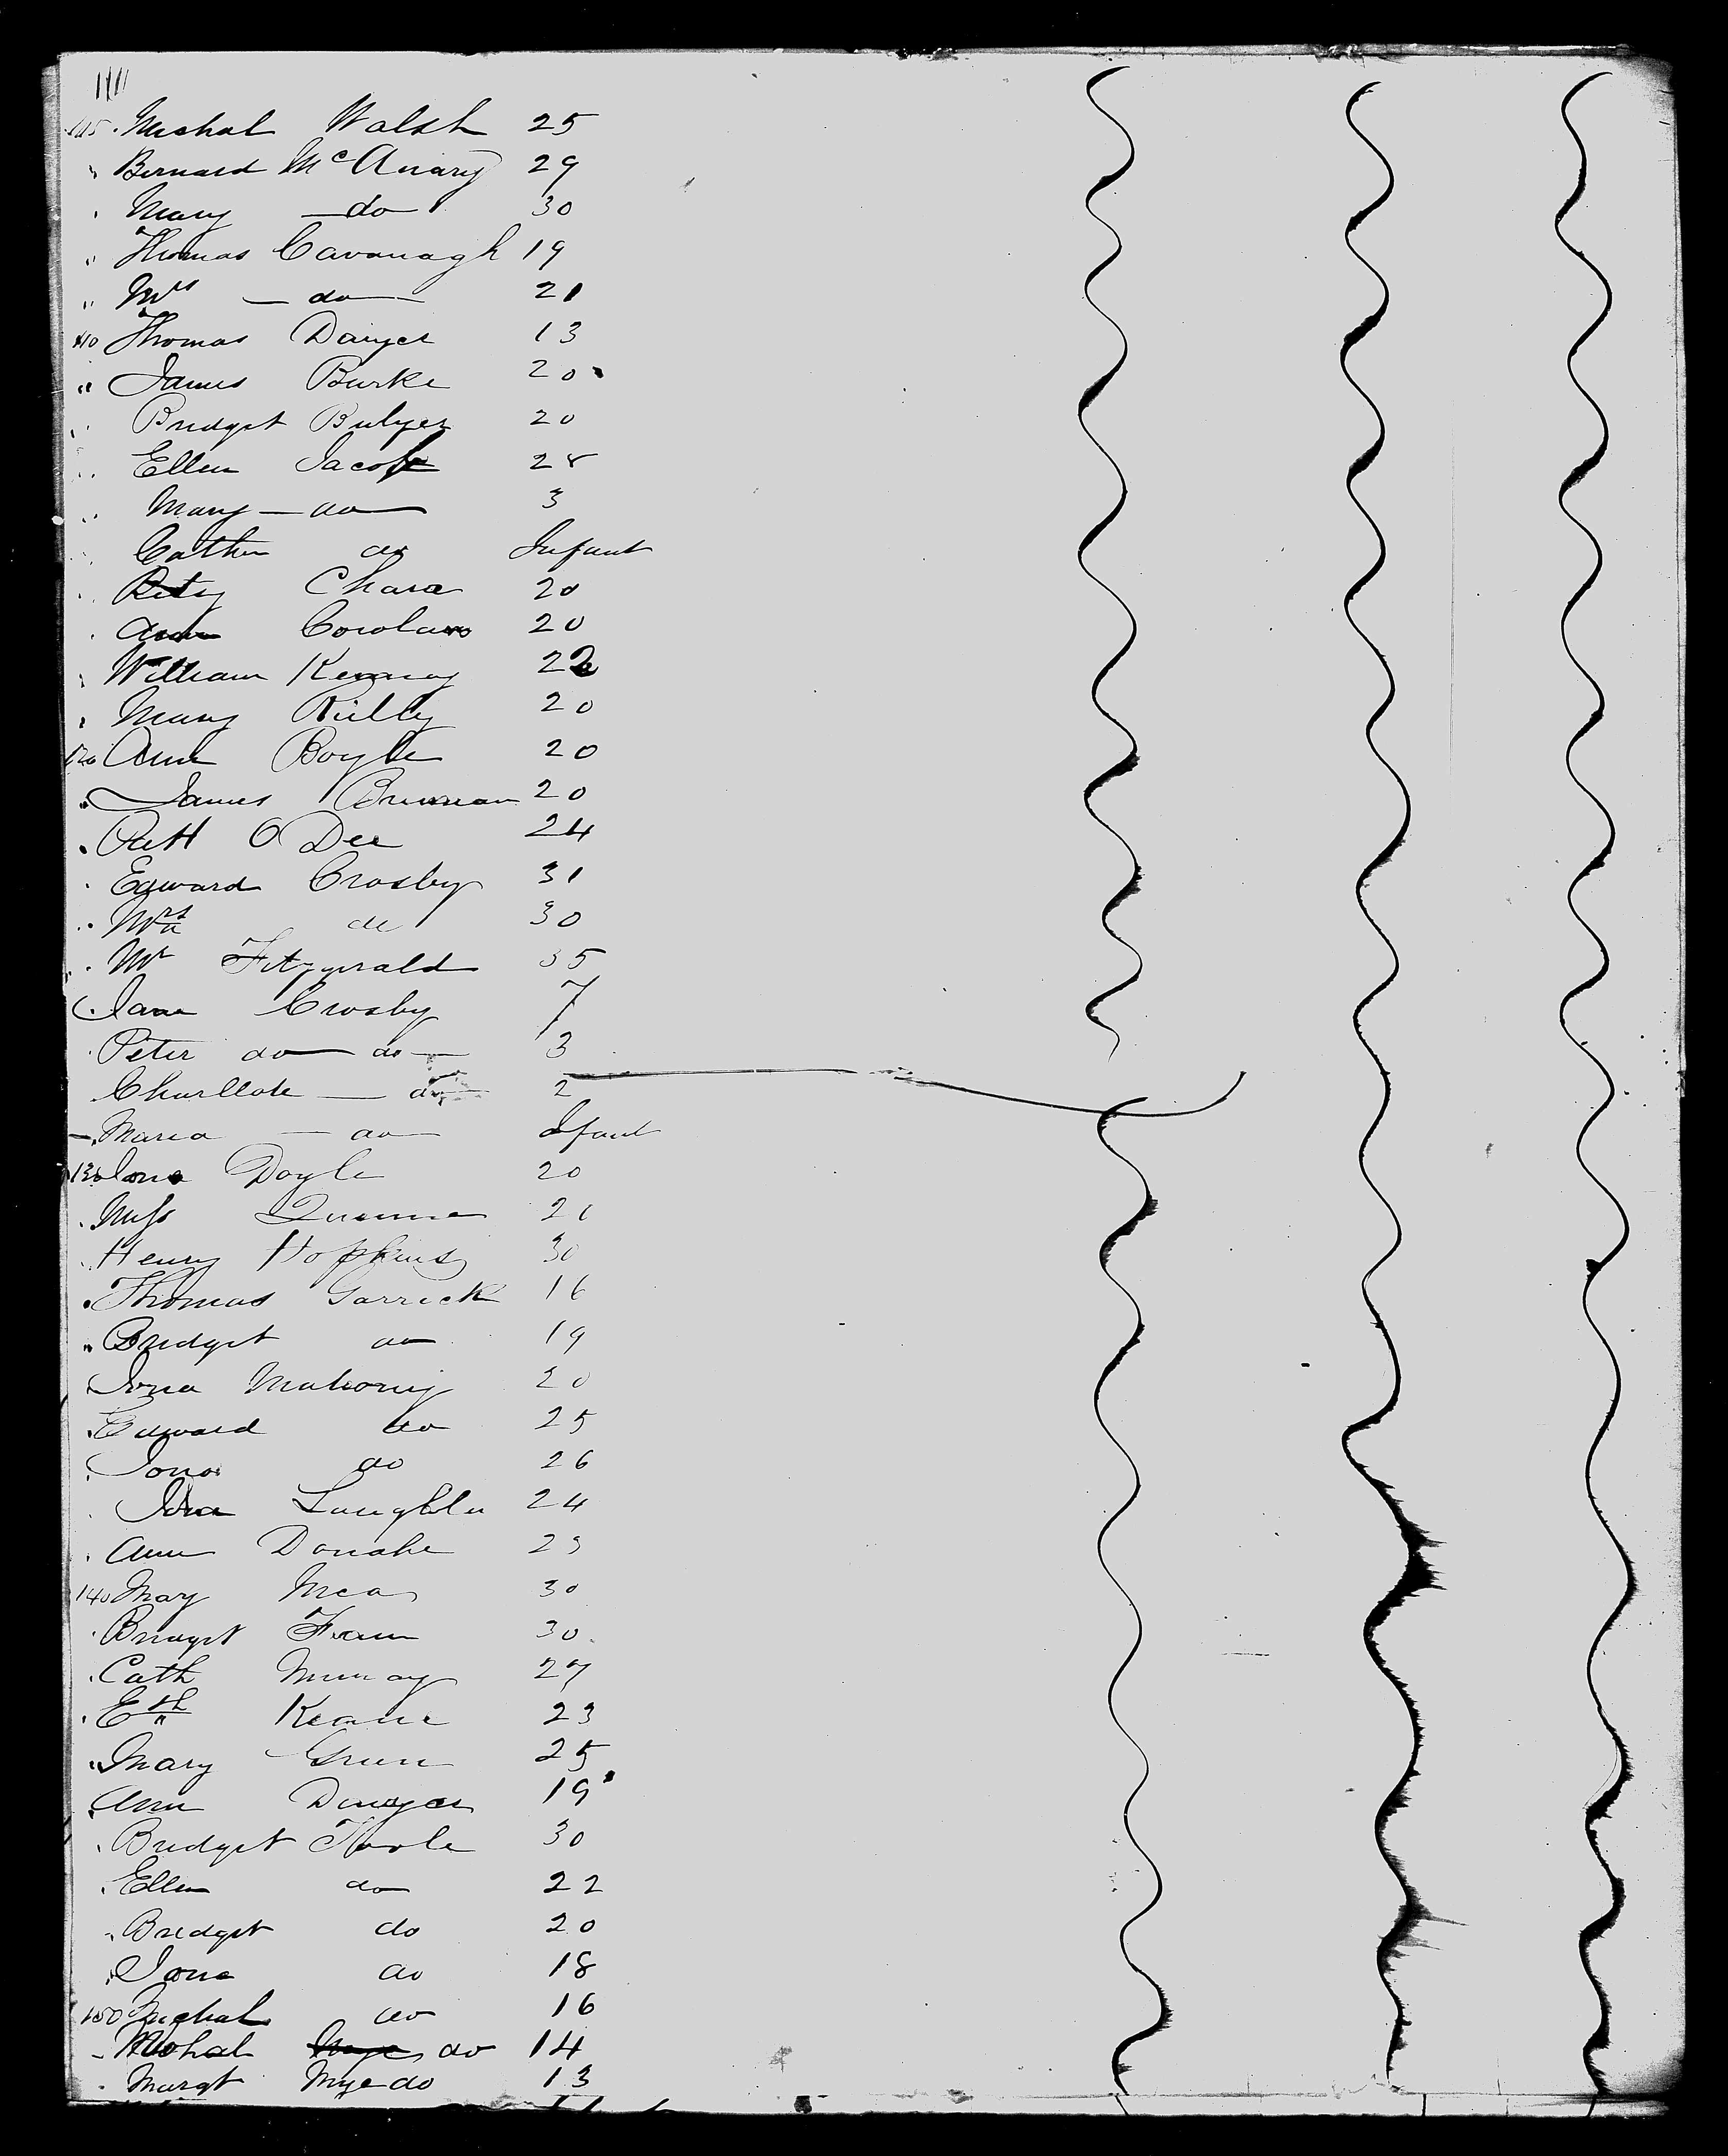 105 Michal Walsh 25
" Bernard McAnany 29
" Mary — do 30
" Thomas Cavanagh 19
" Mrs — do — 21
110 Thomas Dwyer 13
" James Burke 20
" Bridget Bulger 20
" Ellen Jacob 28
" Mary — do — 3
" Cathn do Infant
" Chara 20
" Ann Corolan 20
" William Kenny 22
" Mary Rielly 20
120 Ann Boyle 20
" James Brennan 20
" Patt O Dee 24
" Edward Crosby 31
" Mrs do 30
" Mr Fitzgerald 35
" Jane Crosby 7
" Peter do — do — 3
Charllote — do — 2
" Maria — do — Infant
130 Jane Doyle 20
" Miss Quenne 20
" Henry Hopkins 30
" Thomas Garrick 16
" Bridget do 19
Mahony 20
" Edward do 25
" do 26
" Laughlin 24
" Ann Donahe 23
140 Mary Mea 30
" Bridget 30
" Cath Murray 27
" Eth Keane 23
" Mary Green 25
" Ann Dwyer 19
" Bridget Toole 30
" Ellen do 22
" Bridget do 20
" Jane do 18
150 Michal do 16
" Michal do 14
" Margt Mye do 13